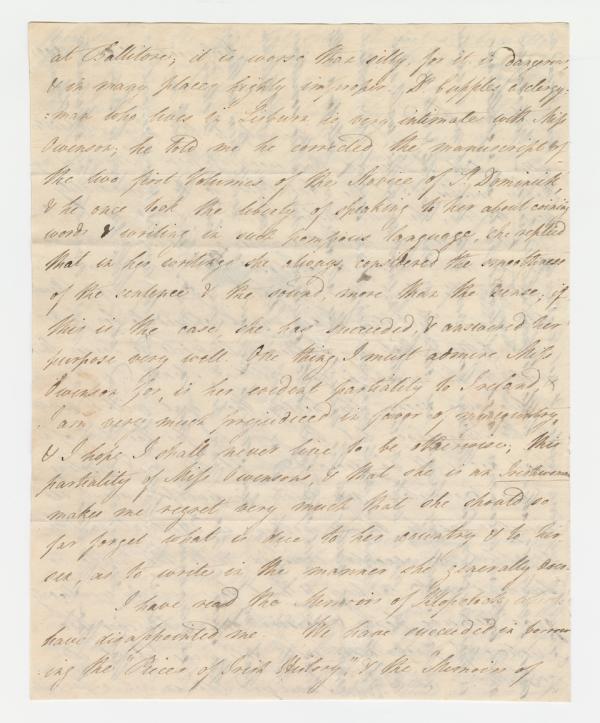 at Ballitore; it is worse than silly, for it is dangerous,
& in many places highly improper. Dr Cupples a clergy-
-man who lives in Lisburn is very intimate with Miss
Owenson; he told me he corrected the manuscript of
the two first volumes of the Novice of St. Dominick,
& he once took the liberty of speaking to her about coining
words & writing in such pompous language, she replied
that in her writings she always considered the smoothness
of the sentence & the sound, more than the sense; if
this is the case she has succeeded, & answered her
purpose very well. One thing I must admire Miss
Owenson for, is her evident partiality to Ireland, &
I am very much prejudiced in favor of my country,
& I hope I shall never live to be otherwise; this
partiality of Miss Owenson's, & that she is an Irishwoman
makes me regret very much that she should so
far forget what is due to her country & to her
sex, as to write in the manner she generally does.
I have read the Memoirs of Klopstock, which
have disappointed me. We have succeeded in borrow-
ing the "Pieces of Irish History" & the "Memoirs of